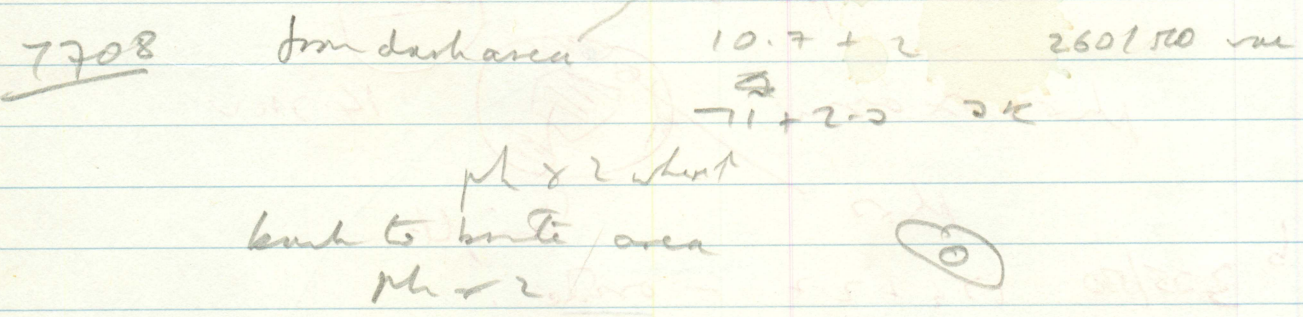 7708 from dark area 10.7 + 2 260/500 vac
71 + 2.2 2K
ph x 2 what
back to area
ph x 2